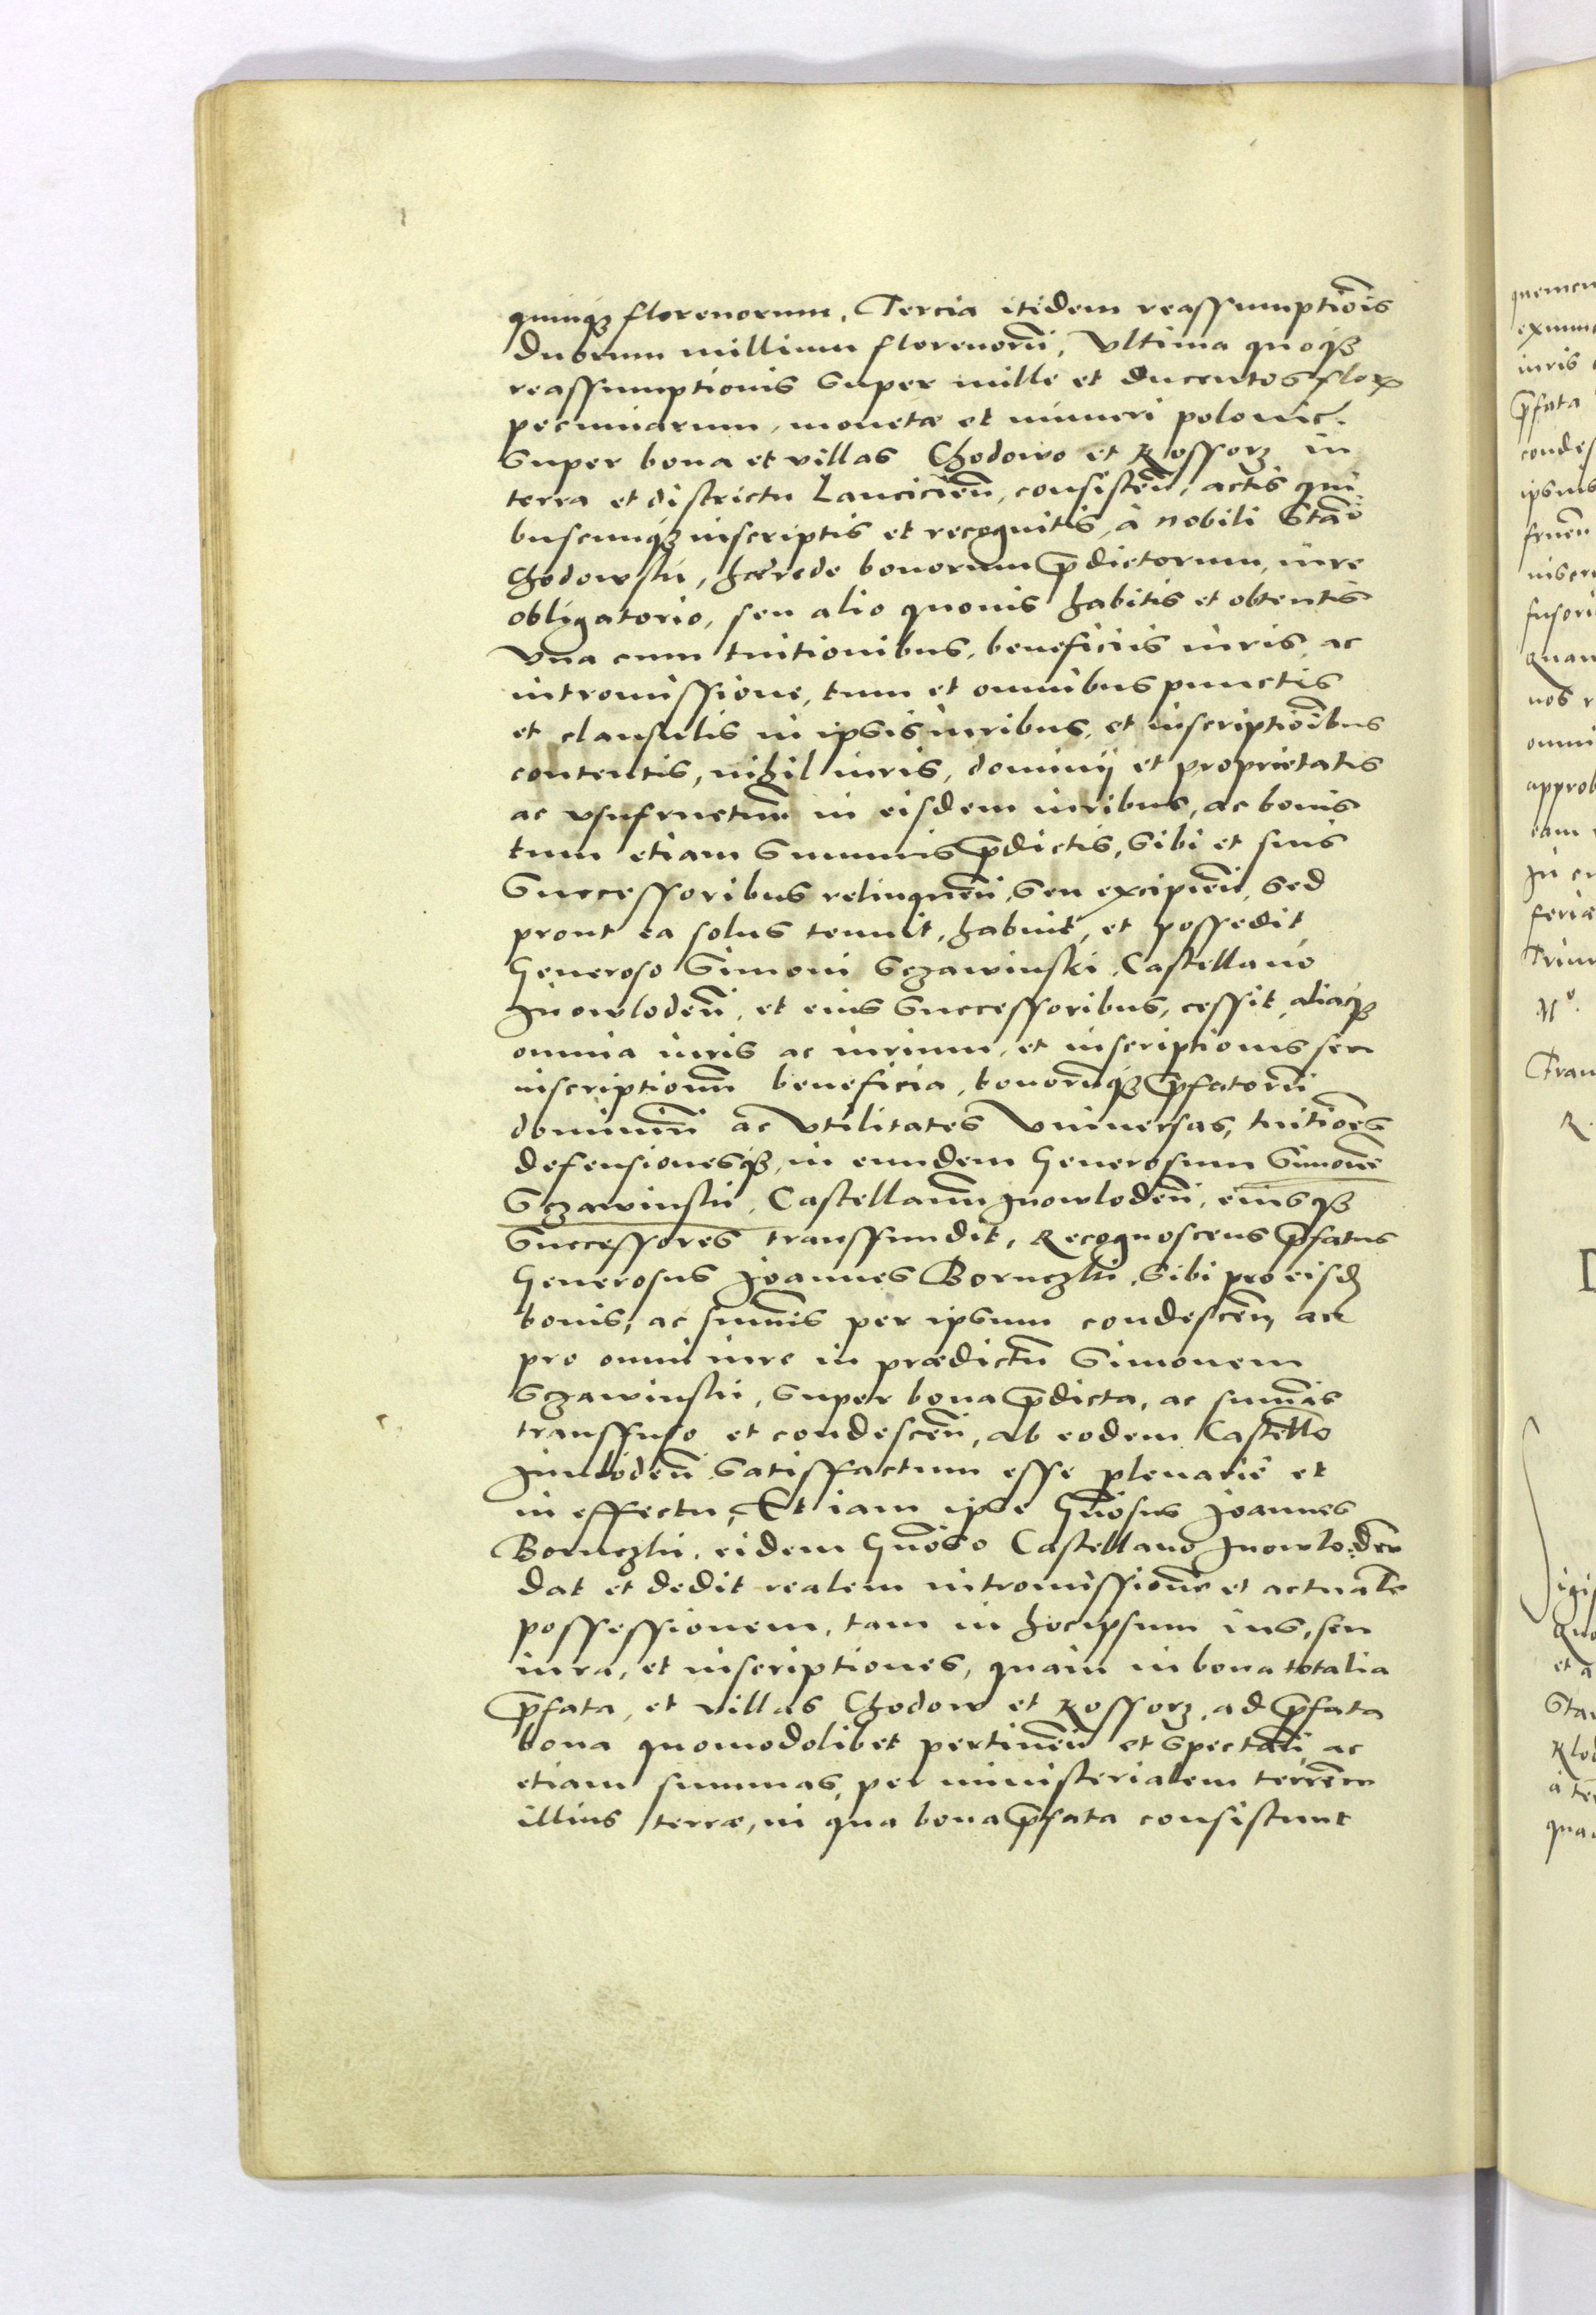 quinqȝ florenorum, Tercia itidem reassumptiōis
duorum millium florenorū, Vltima quoqȝ
reassumptionis super mille et ducentos flor
pecuniarum, monetæ et numeri polonic.
super bona et villas Chodowo et Rossorz in
terra et districtu Lancicieñ, consisteñ, actis qui-
buscunqȝ inscriptis et recognitis, à nobili Stāo
Chodowskj, hærede bonorum p̄dictorum, iure
obligatorio, seu alio quouis habitis et obtentis
Vna cum tuitionibus, beneficiis iuris, ac
intromissione, tum et omnibus punctis
et clausulis in ipsis iuribus, et inscriptiōibus
contentis, nihil iuris, dominij et proprietatis
ac vsufructum in eisdem iuribus, ac bonis
tum etiam summis p̄dictis, sibi et suis
Successoribus relinqueñ, seu excipieñ, sed
prout ea solus tenuit, habuit, et possedit,
Generoso Simoni Sczawinski, Castellano
Inowlodeñ, et eius Successoribus, cessit, aliaqȝ
omnia iuris ac iurium, et inscriptionis seu
inscriptionū beneficia, bonorūqȝ p̄fatorū
dominiū ac vtilitates Vniuersas, tuitiōes
defensionesqȝ, in eundem Generosum Simonē
Sczawinskj, Castellanū Inowlodeñ, eiusqȝ
Successores transfundit, Recognoscens p̄fatus
Generosus Joannes Boruczkj, sibi pro eisd
bonis, ac sum̄is per ipsum condesceñ, ac
pro omni iure in prædictū Simonem
Sczawinskj, super bona p̄dicta, ac sum̄as
transfuso et condesceñ, ab eodem Castello
Inulodeñ satisffactum esse plenariè et
in effectu, Et iam ipse Gñosus Joannes
Boruczkj, eidem Gñoso Castellano Inowlodeñ
dat et dedit realem intromissionē et actualē
possessionem, tam in hocipsum ius, seu
iura, et inscriptiones, quàm in bona totalia
p̄fata, et villas Chodow et Rossorz, ad p̄fata
bona quomodolibet pertineñ et spectañ, ac
etiam summas, per ministerialem terrēm
illius terræ, in qua bona p̄fata consistunt